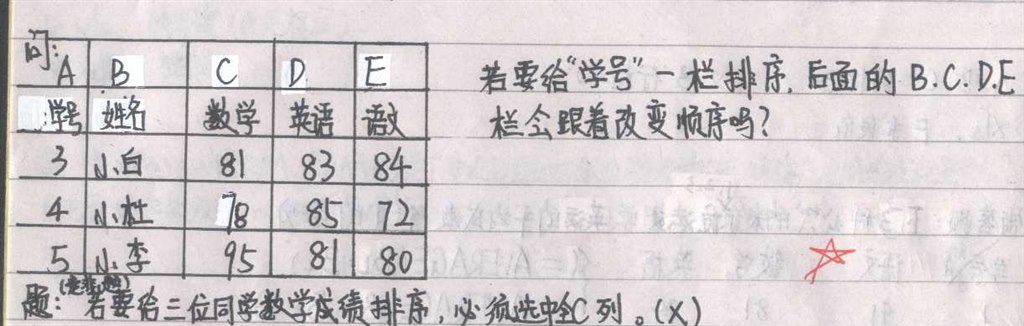 问:
A B C D. E
学号 姓名 数学 英语 语文
3 小白 81 83 84
4 小杜 78 85 72
5 小李 95 81 80
若要给"学号"一栏排序,后面的B.C.D.E
栏会跟着改变顺序吗?
(是非题)
题:若要给三位同学数学成绩排序,必须选中全C列。(X)